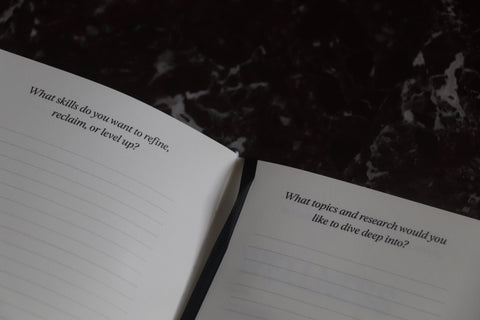 What skills do you want to refine,
reclaim, or level up?
What topics and research would you
like to dive deep into?